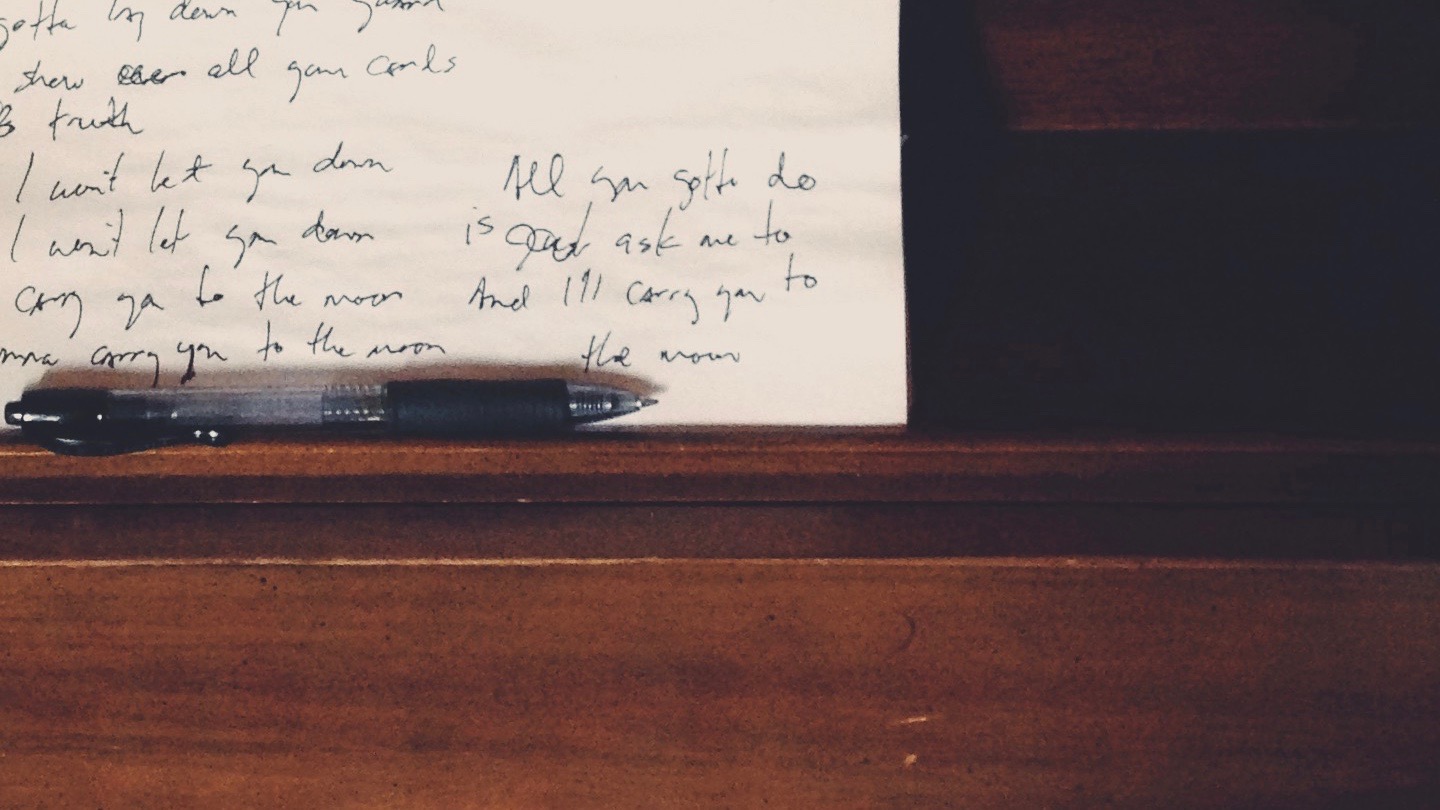 gotta lay down your guard
show all your cards
truth
I won't let you down
I won't let you down
carry you to the moon
carry you to the moon
All you gotta do
is just ask me to
And I'll carry you to
the moon